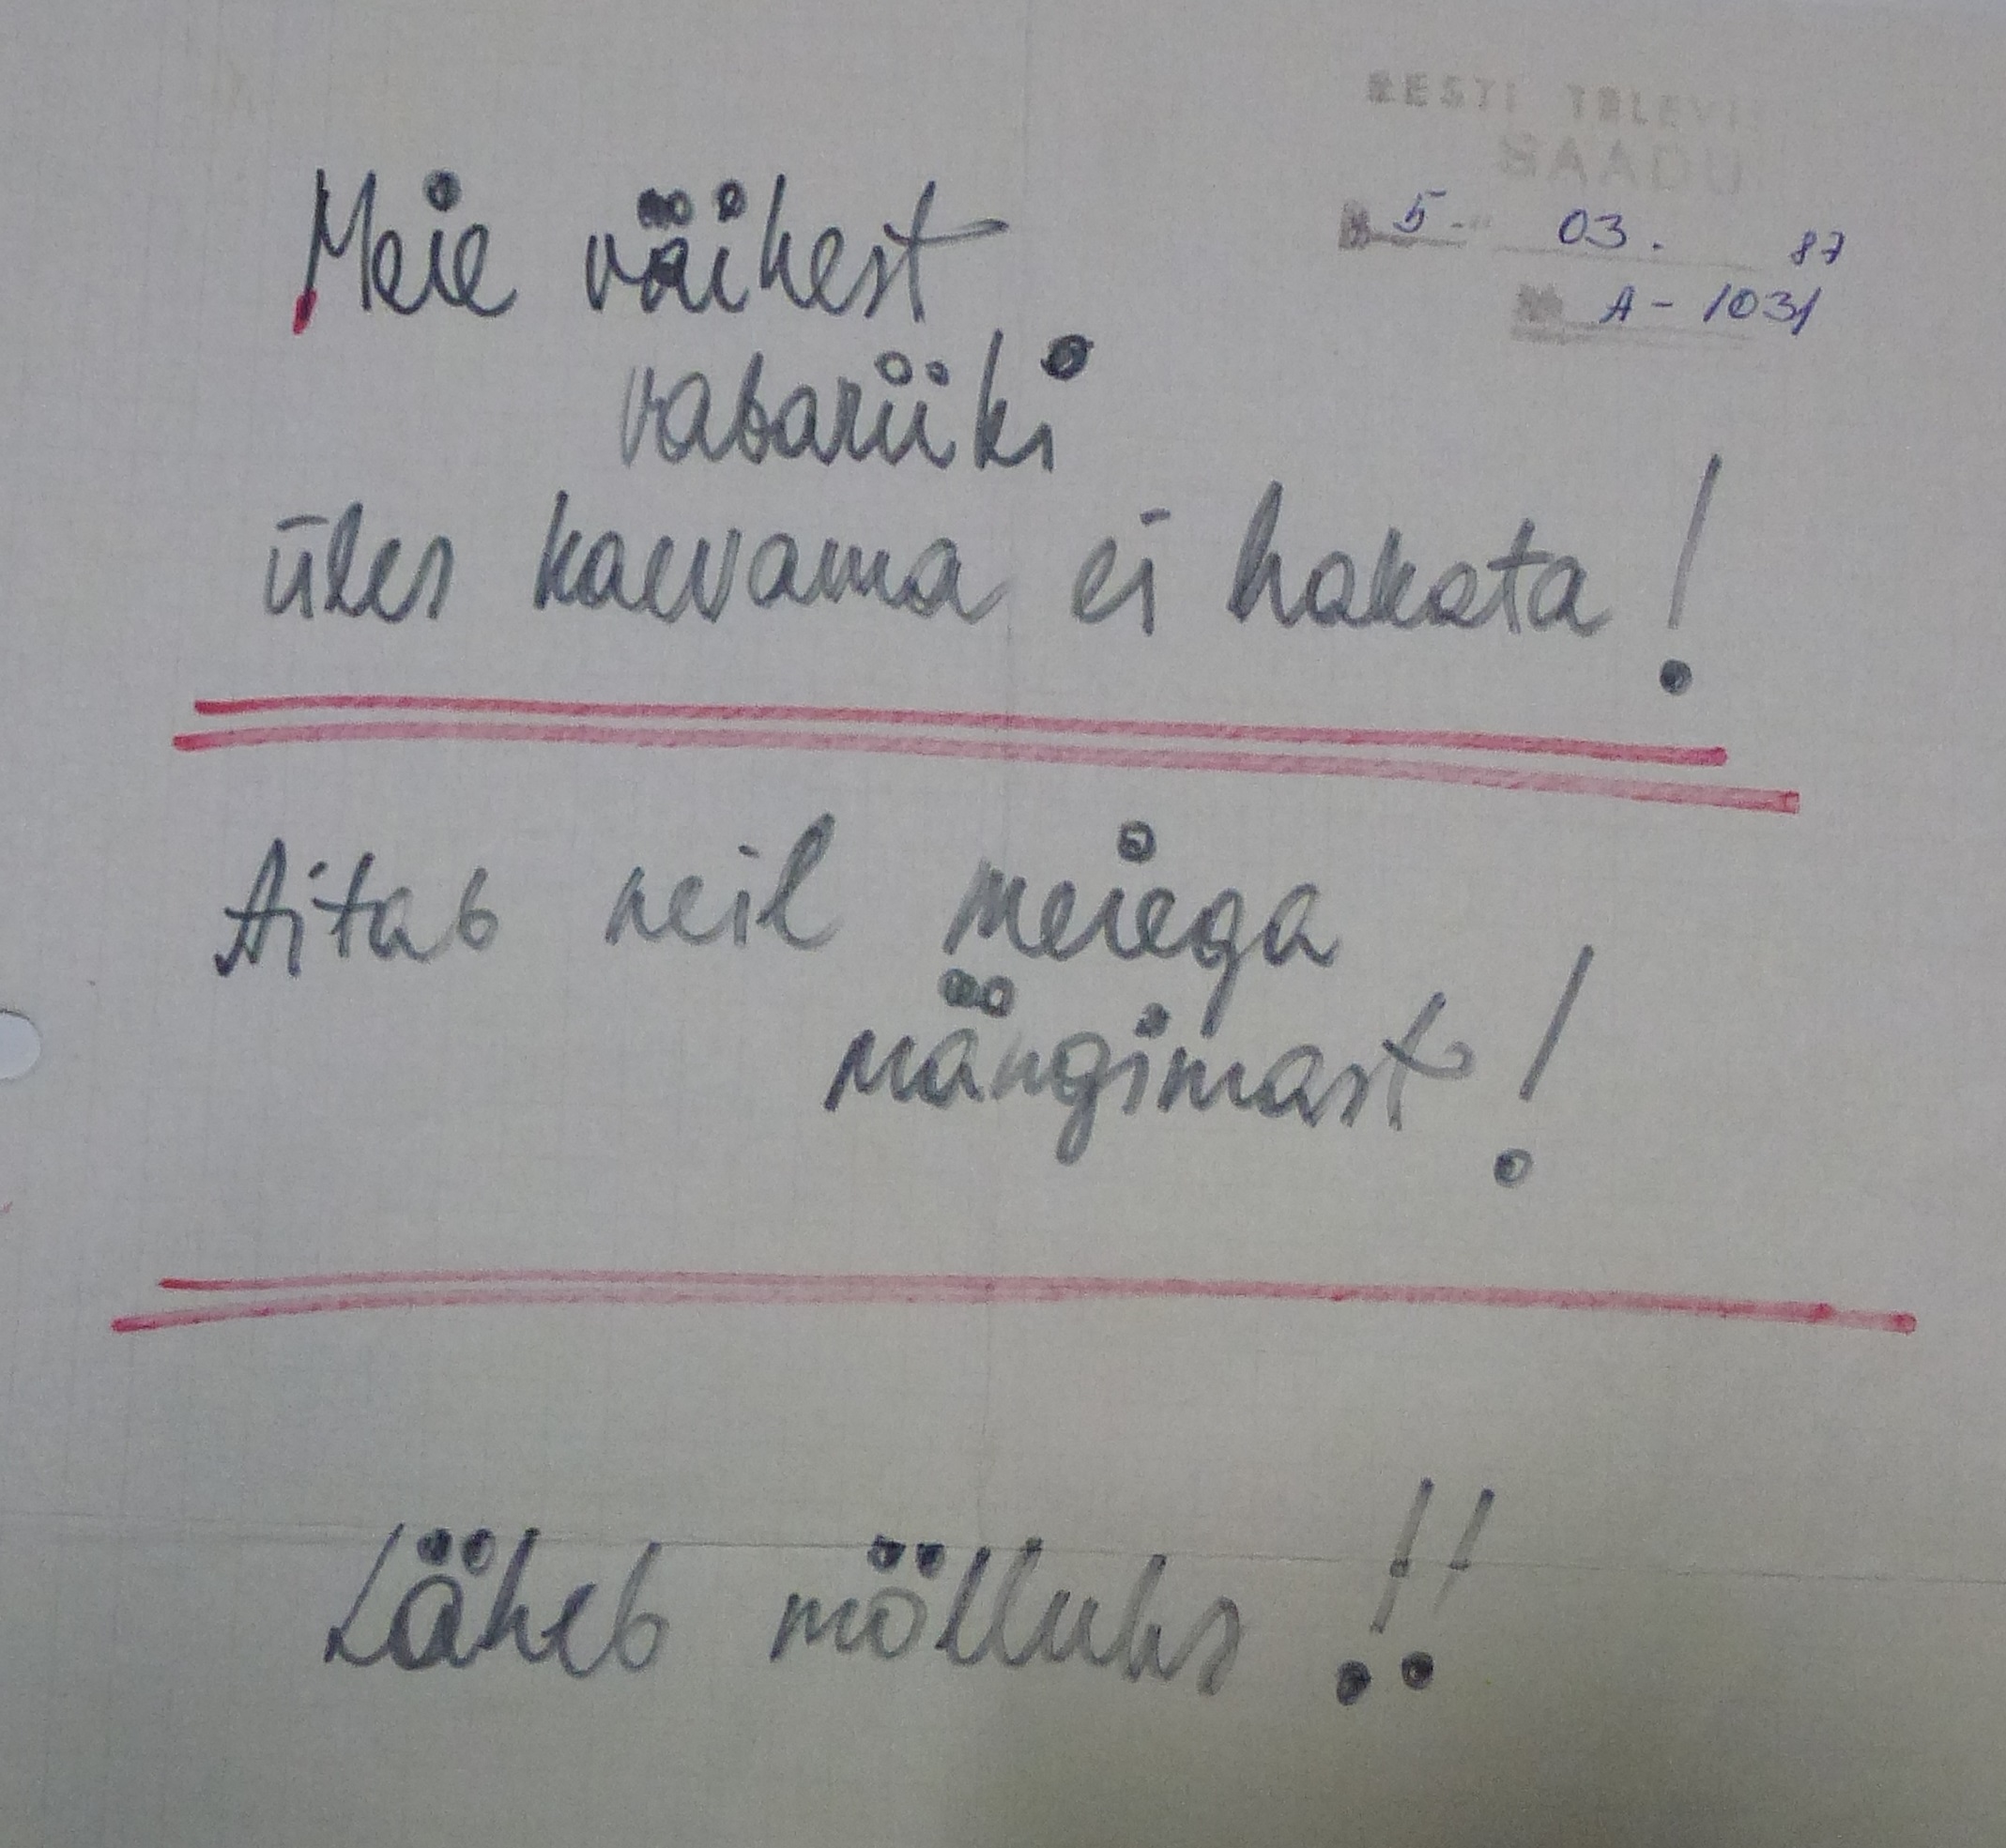 EESTI TELEVI
SAADU
5. 03. 87
A - 1031
Meie väikest
vabariiki
üles kaevama ei hakata!
Aitab neil meiega
mängimast!
Läheb mölluks!!